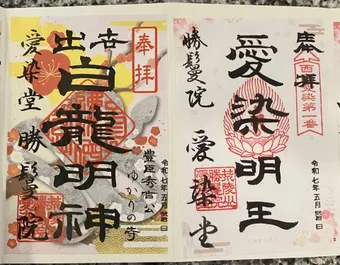 奉拝
西国愛染第一番
愛染明王
勝鬘院
愛染堂
令和七年五月
奉拝
出世
白龍明神
豊臣秀吉公
ゆかりの寺
愛染堂
勝鬘院
令和七年五月